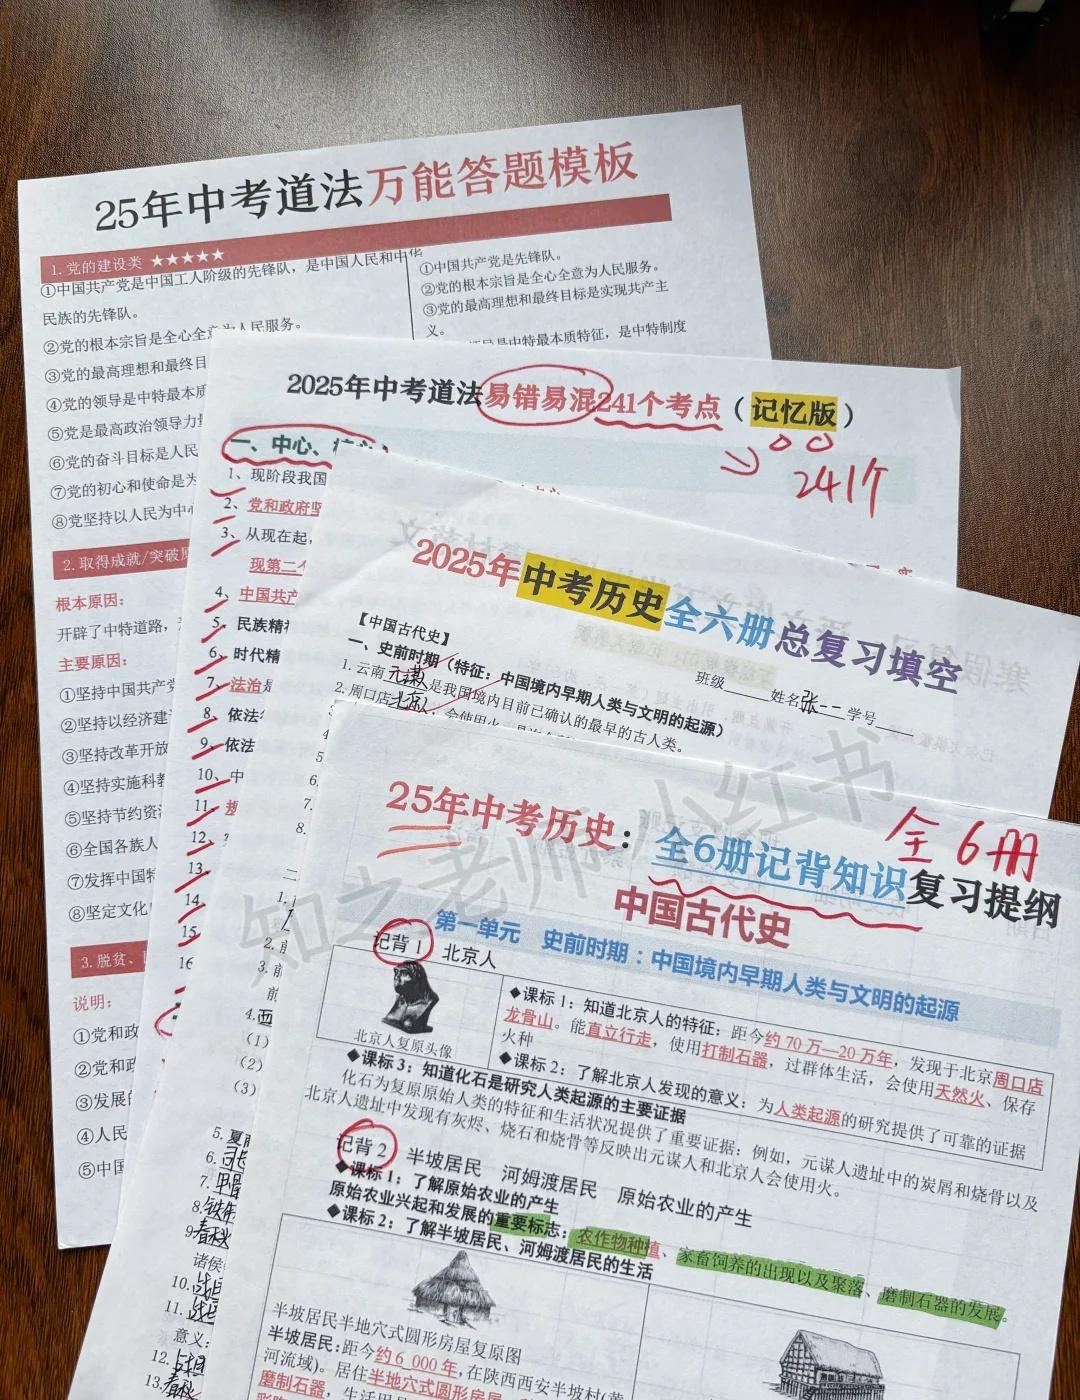 25年中考道法万能答题模板
1. 党的建设类 ★★★★★
①中国共产党是中国工人阶级的先锋队，是中国人民和中华
民族的先锋队。
②党的根本宗旨是全心全意为人民服务。
③党的最高理想和最终目
④党的领导是中特最本质
⑤党是最高政治领导力量
⑥党的奋斗目标是人民
⑦党的初心和使命是为
⑧党坚持以人民为中心
①中国共产党是先锋队。
②党的根本宗旨是全心全意为人民服务。
③党的最高理想和最终目标是实现共产主
义。
领导是中特最本质特征，是中特制度
2. 取得成就/突破原
根本原因：
开辟了中特道路，
主要原因：
①坚持中国共产党
②坚持以经济建设
③坚持改革开放
④坚持实施科教
⑤坚持节约资源
⑥全国各族人
⑦发挥中国特
⑧坚定文化
3. 脱贫、
说明：
①党和政
②党和政
③发展的
④人民
⑤中国
2025年中考道法易错易混241个考点（记忆版）
241个
一、中心、核心
1、现阶段我国
2、党和政府坚
3、从现在起，
现第二个
4、中国共产
5、民族精神
6、时代精
7、法治是
8、依法
9、依法
10、中
11、
12、
13、
14、
15、
16
2025年中考历史全六册总复习填空
班级 姓名张一二学号
【中国古代史】
一、史前时期（特征：中国境内早期人类与文明的起源）
1. 云南元谋人是我国境内目前已确认的最早的古人类。
2. 周口店北京人，会使用火
5
6.
7.
8.
二
1.
2. 前
3. 前
前
4.
(1)
(2)
(3)
5. 夏商
6.
7. 甲骨
8. 铁
9. 春秋
诸侯
10. 战国
11. 战国
意义：
12. 战国
13. 春秋
25年中考历史：全6册记背知识复习提纲
全6册
中国古代史
第一单元 史前时期：中国境内早期人类与文明的起源
记背1 北京人
北京人复原头像
◆课标1：知道北京人的特征：距今约70万—20万年，发现于北京周口店
龙骨山。能直立行走，使用打制石器，过群体生活，会使用天然火、保存
火种
◆课标2：了解北京人发现的意义：为人类起源的研究提供了可靠的证据
◆课标3：知道化石是研究人类起源的主要证据
化石为复原原始人类的特征和生活状况提供了重要证据：例如，元谋人遗址中的炭屑和烧骨以及
北京人遗址中发现有灰烬、烧石和烧骨等反映出元谋人和北京人会使用火。
记背2 半坡居民 河姆渡居民 原始农业的产生
◆课标1：了解原始农业的产生
原始农业兴起和发展的重要标志：农作物种植、家畜饲养的出现以及聚落、磨制石器的发展。
◆课标2：了解半坡居民、河姆渡居民的生活
半坡居民半地穴式圆形房屋复原图
半坡居民：距今约6 000年，在陕西西安半坡村(黄
河流域)。居住半地穴式圆形房屋
磨制石器，生活用具
知之老师 小红书